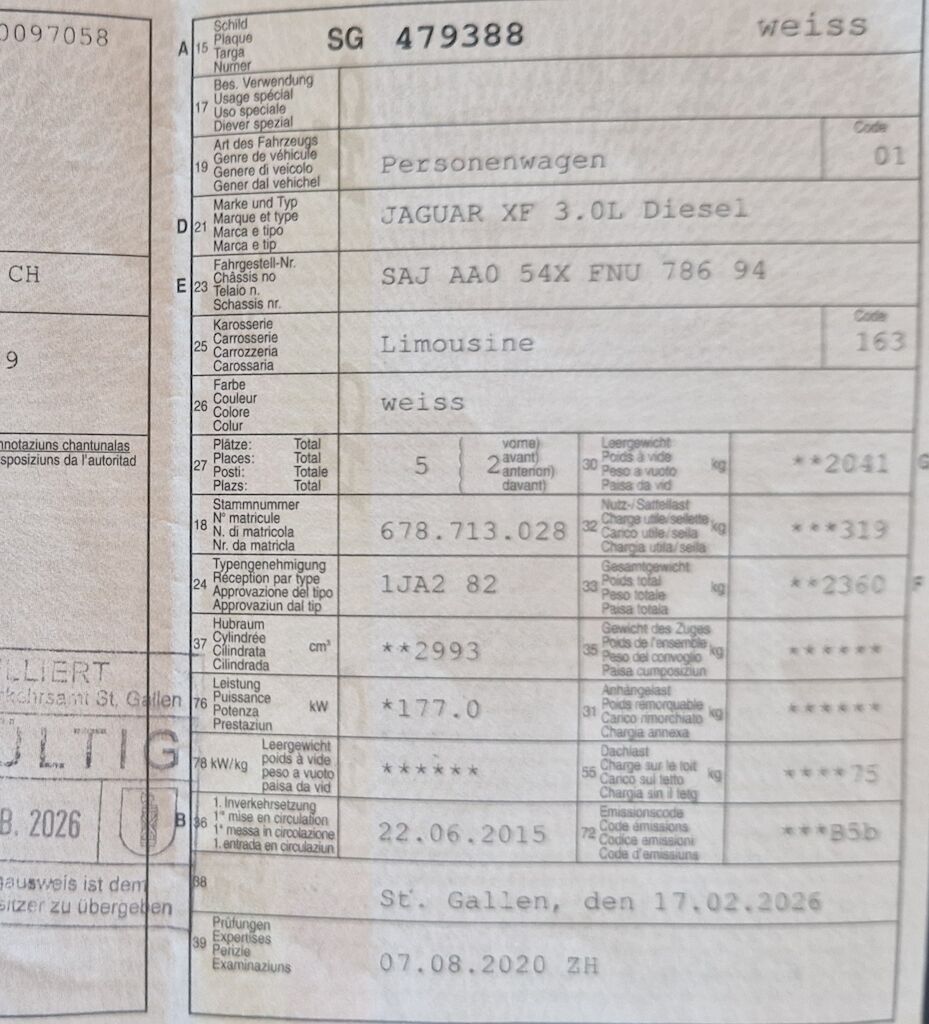 0097058
CH
9
nnotaziuns chantunalas
sposiziuns da l'autoritad
LLIERT
kehrsamt St. Gallen
ÜLTIG
B. 2026
gausweis ist dem
sitzer zu übergeben
A 15 Schild Plaque Targa Numer SG 479388 weiss
17 Bes. Verwendung Usage spécial Uso speciale Diever spezial
19 Art des Fahrzeugs Genre de véhicule Genere di veicolo Gener dal vehichel Personenwagen Code 01
D 21 Marke und Typ Marque et type Marca e tipo Marca e tip JAGUAR XF 3.0L Diesel
E 23 Fahrgestell-Nr. Châssis no Telaio n. Schassis nr. SAJ AA0 54X FNU 786 94
25 Karosserie Carrosserie Carrozzeria Carossaria Limousine Code 163
26 Farbe Couleur Colore Colur weiss
27 Plätze: Total Places: Total Posti: Totale Plazs: Total 5 ( 2 vorne) avant) anteriori) davant)
30 Leergewicht Poids à vide Peso a vuoto Paisa da vid kg **2041 G
18 Stammnummer N° matricule N. di matricola Nr. da matricla 678.713.028
32 Nutz-/Sattellast Charge utile/sellette Carico utile/sella Chargia utila/sella kg ***319
24 Typengenehmigung Réception par type Approvazione del tipo Approvaziun dal tip 1JA2 82
33 Gesamtgewicht Poids total Peso totale Paisa totala kg **2360 F
37 Hubraum Cylindrée Cilindrata Cilindrada cm³ **2993
35 Gewicht des Zuges Poids de l'ensemble Peso del convoglio Paisa cumposiziun kg ******
76 Leistung Puissance Potenza Prestaziun kW *177.0
31 Anhängelast Poids remorquable Carico rimorchiato Chargia annexa kg ******
78 kW/kg Leergewicht poids à vide peso a vuoto paisa da vid ******
55 Dachlast Charge sur le toit Carico sul tetto Chargia sin il tetg kg ****75
B 36 1. Inverkehrsetzung 1re mise en circulation 1a messa in circolazione 1. entrada en circulaziun 22.06.2015
72 Emissionscode Code émissions Codice emissioni Code d'emissiuns ***B5b
38 St. Gallen, den 17.02.2026
39 Prüfungen Expertises Perizie Examinaziuns 07.08.2020 ZH